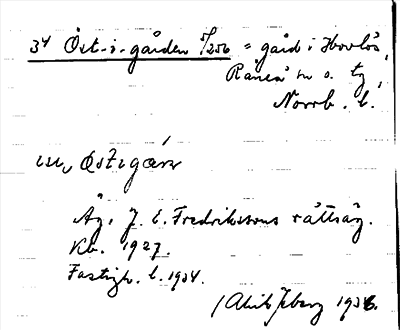 34 Öst-i-gården 5/256 = gård i Hovlös,
Råneå sn o. tg,
Norrb. l.
östigårn
Äg. J. E. Fredrikssons rättsäg.
Kb. 1927.
Fastigh. l. 1934.
1936.